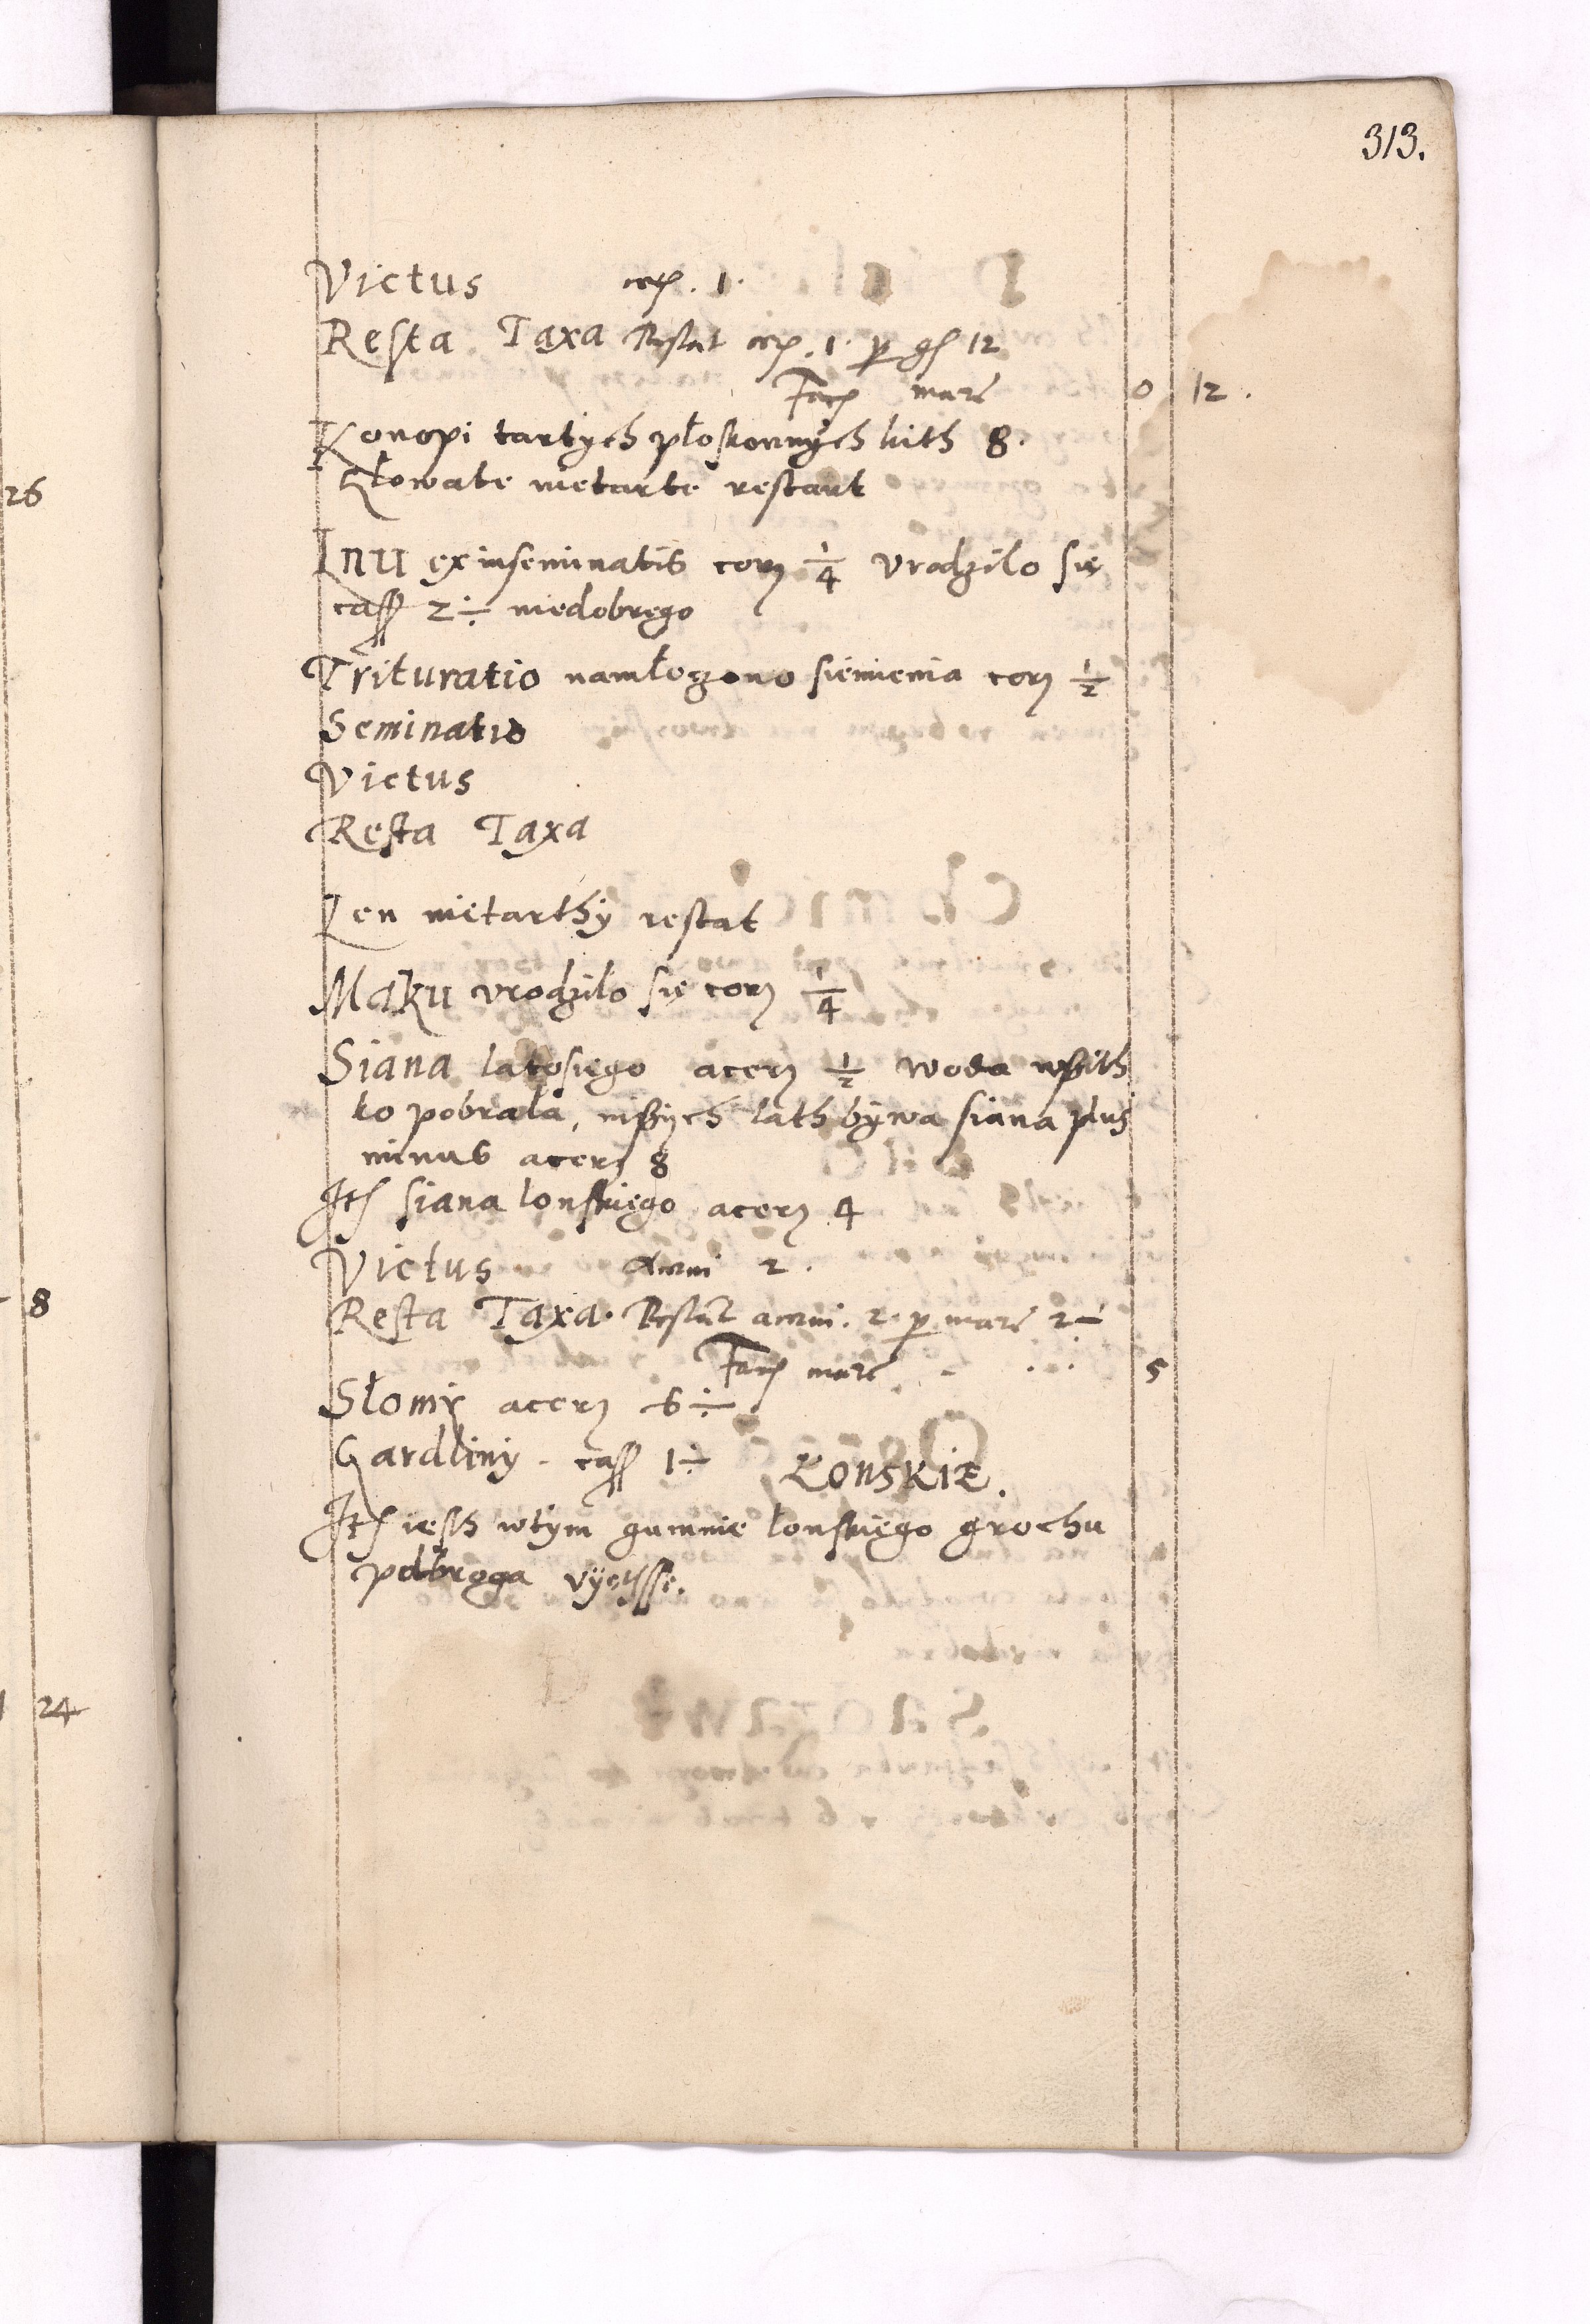 313.
Victus cor. 1.
Resta Taxa Restat cor. 1. p gr 12
Facit marc 0 12.
Konopi tartych płoskonnych kith 8.
Głowate nietarte restant
Lnu ex inseminatis corz 1/4 vrodzilo się
cass 2 ÷ niedobrego
Trituratio namłoczono siemienia corz 1/2
Seminatio
Victus
Resta Taxa
Len nietarthy restat
Maku vrodzilo się corz 1/4
Siana latosiego acerz 1/2 woda wssith
ko pobrała, inssych lath bywa siana plus
minus acerz 8
Ith siana lonskiego acerz 4
Victus acerui 2.
Resta Taxa. Restant acerui. 2. p marc 2 ÷
Facit marc - . . . 5
Słomy acerz 6 ÷
Gardliny - cass 1 ÷ Łonskie.
Ith iesth wtym gumnie łonskiego grochu
polbroga
26
8
24